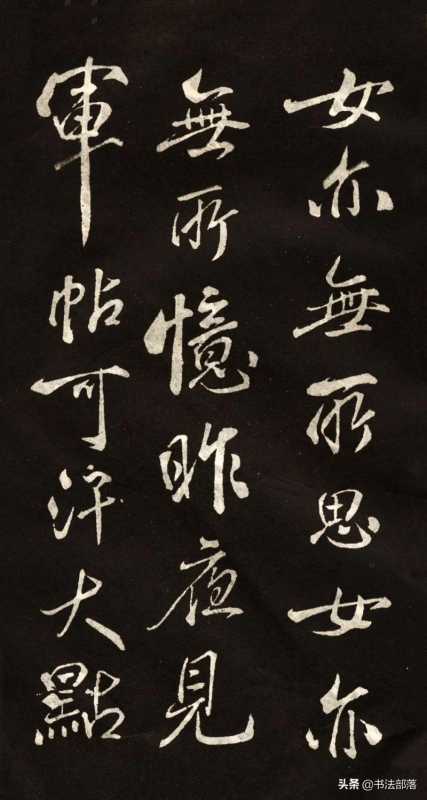 女亦無所思女亦
無所憶昨夜見
軍帖可汗大點
头条@书法部落